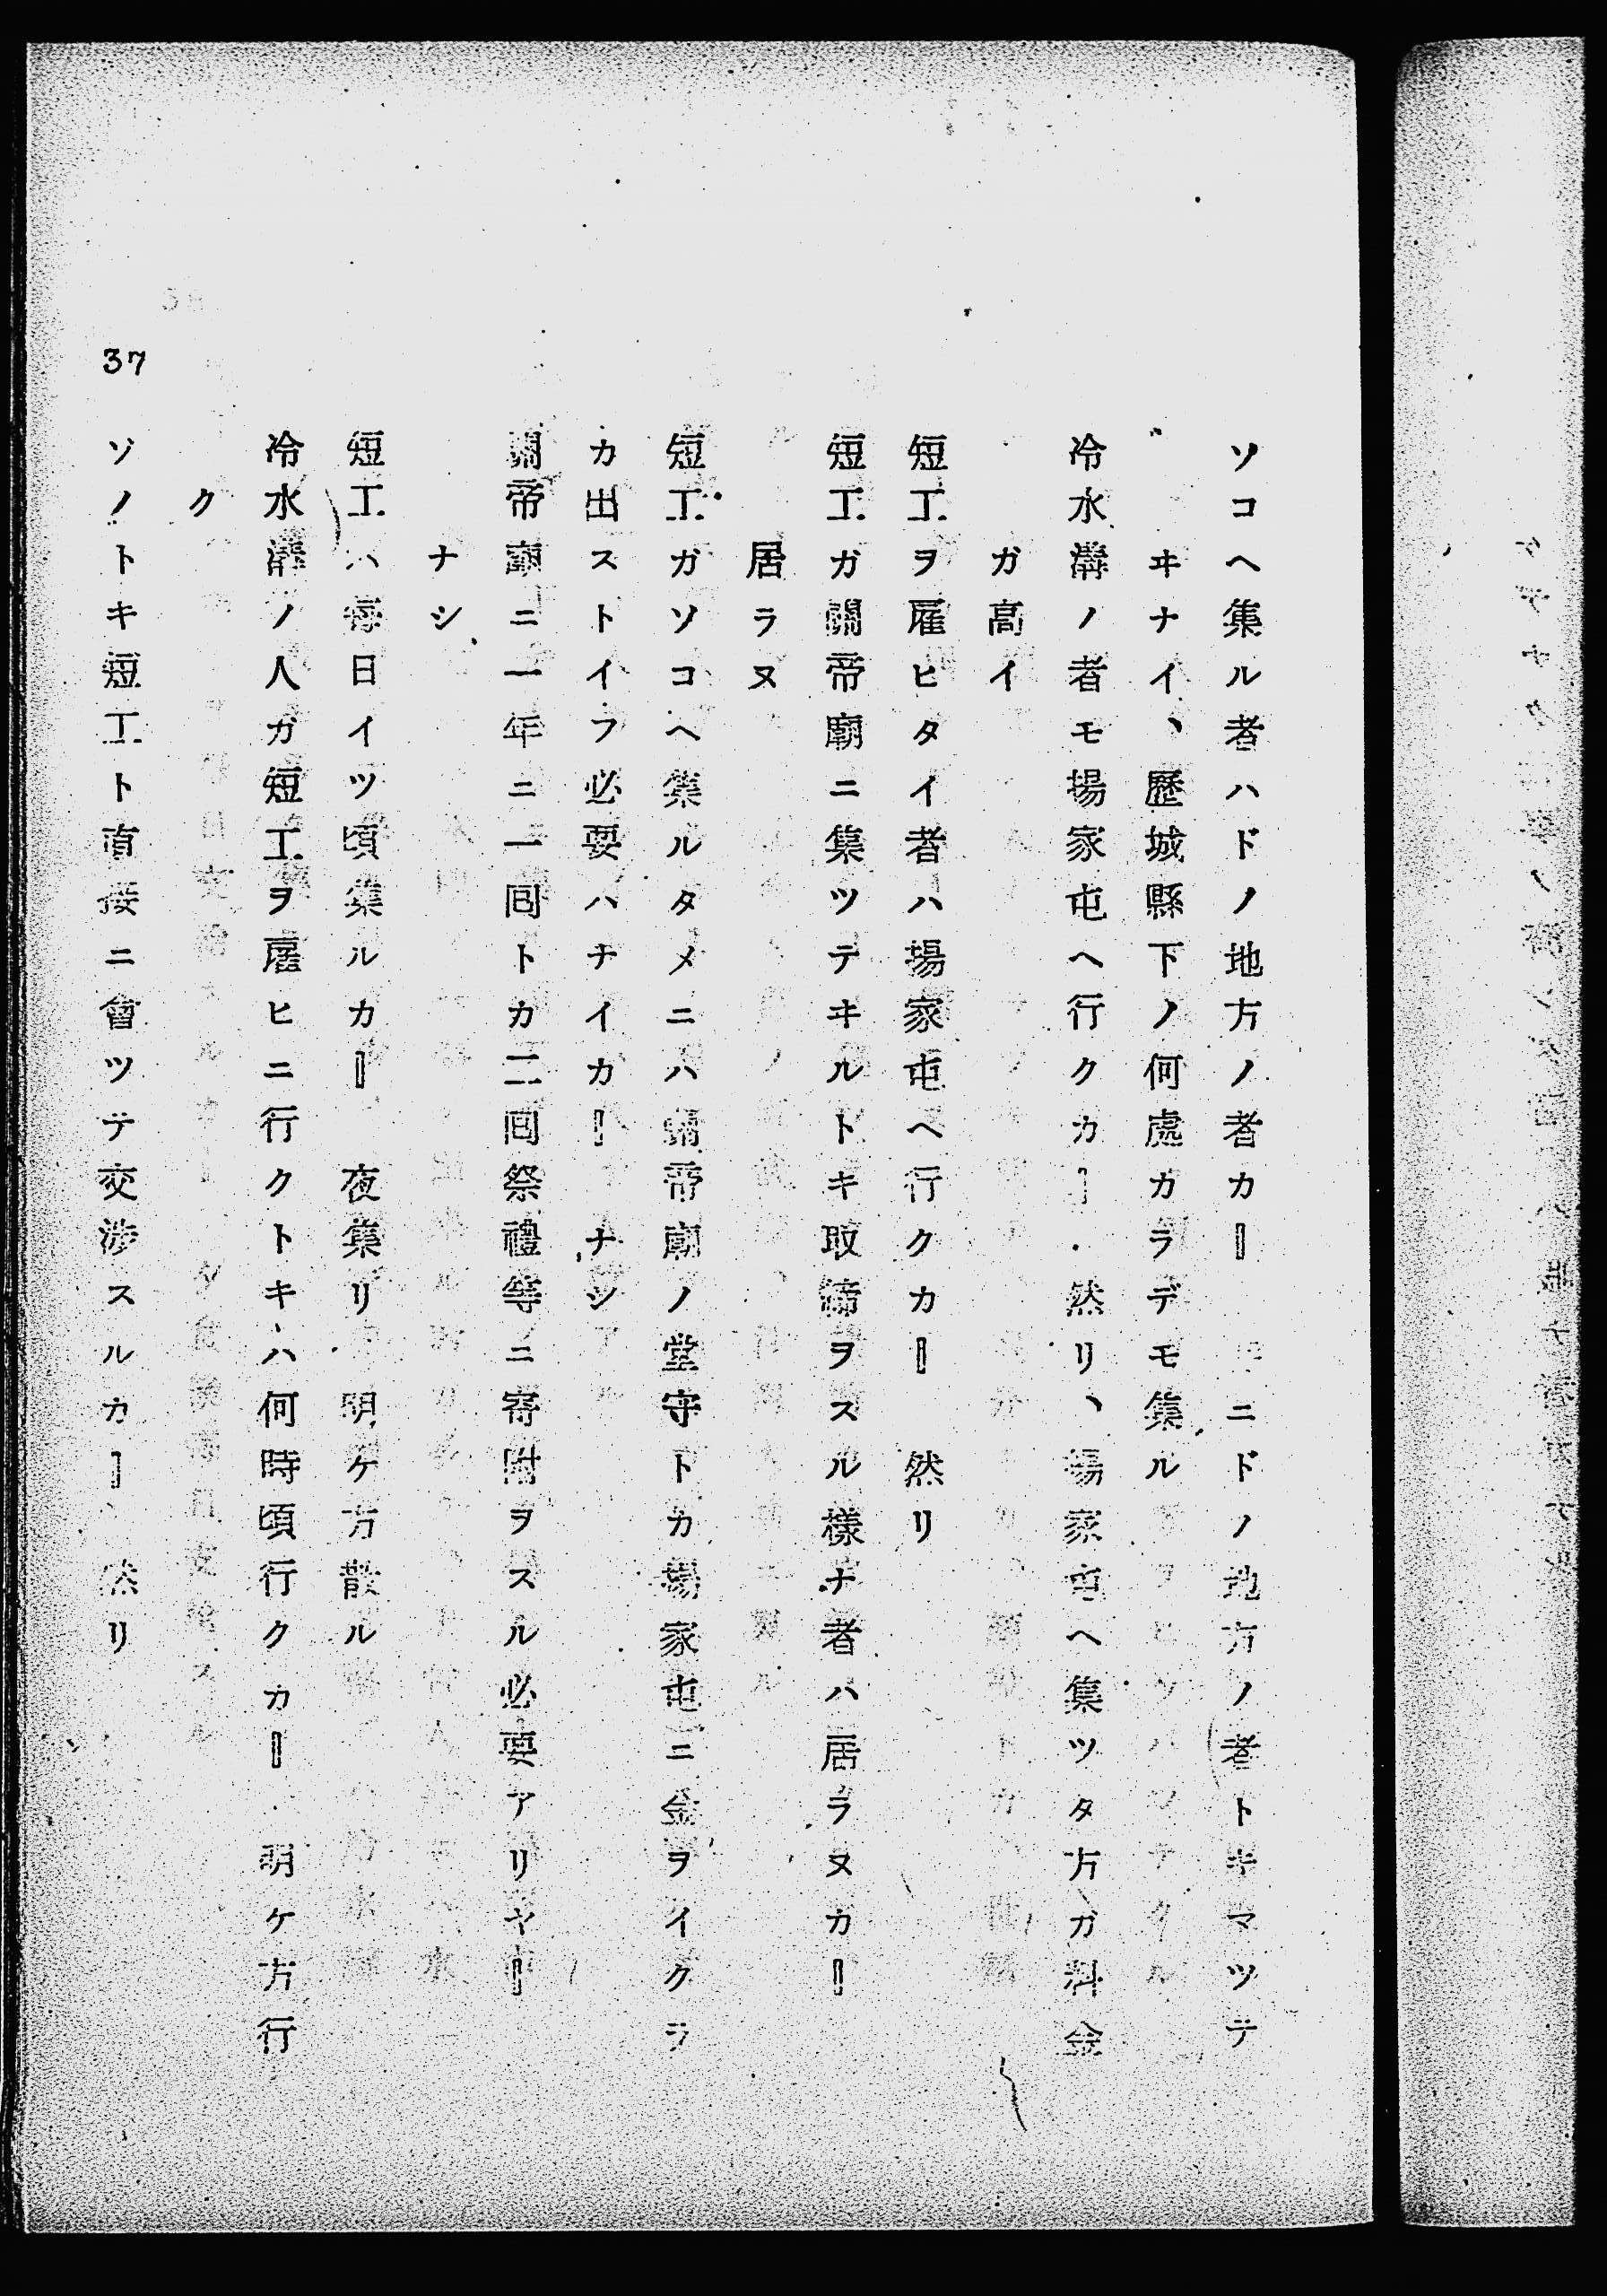 ソコヘ集ル者ハドノ地方ノ者カ＝ニドノ地方ノ者トキマツテ
ヰナイ、歷城縣下ノ何處カラデモ集ル
冷水溝ノ者モ楊家屯ヘ行クカ＝然リ、楊家屯ヘ集ツタ方ガ料金
ガ高イ
短工ヲ雇ヒタイ者ハ楊家屯ヘ行クカ＝然リ
短工ガ關帝廟ニ集ツテキルトキ取締ヲスル樣ナ者ハ居ラヌカ＝
居ラヌ
短工ガソコヘ集ルタメニハ關帝廟ノ堂守トカ楊家屯ニ金ヲイクラ
カ出ストイフ必要ハナイカ＝ナシ
關帝廟ニ一年ニ一囘トカ二囘祭禮等ニ寄附ヲスル必要アリヤ＝
ナシ
短工ハ每日イツ頃集ルカ＝夜集リ　明ケ方散ル
冷水溝ノ人ガ短工ヲ雇ヒニ行クトキハ何時頃行クカ＝明ケ方行
ク
ソノトキ短工ト直接ニ會ツテ交涉スルカ＝然リ
37